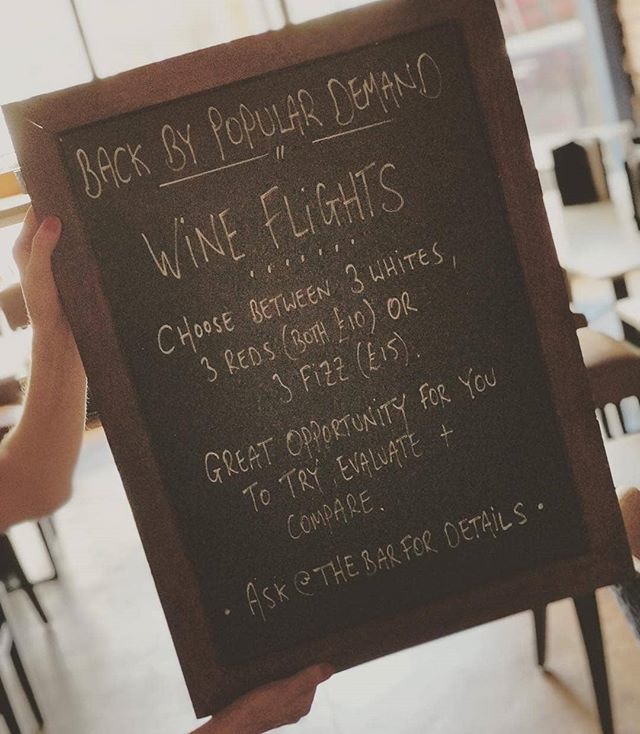 BACK BY POPULAR DEMAND
WINE FLIGHTS
CHOOSE BETWEEN 3 WHITES,
3 REDS (BOTH £10) OR
3 FIZZ (£15).
GREAT OPPORTUNITY FOR YOU
TO TRY, EVALUATE +
COMPARE.
• ASK @ THE BAR FOR DETAILS •